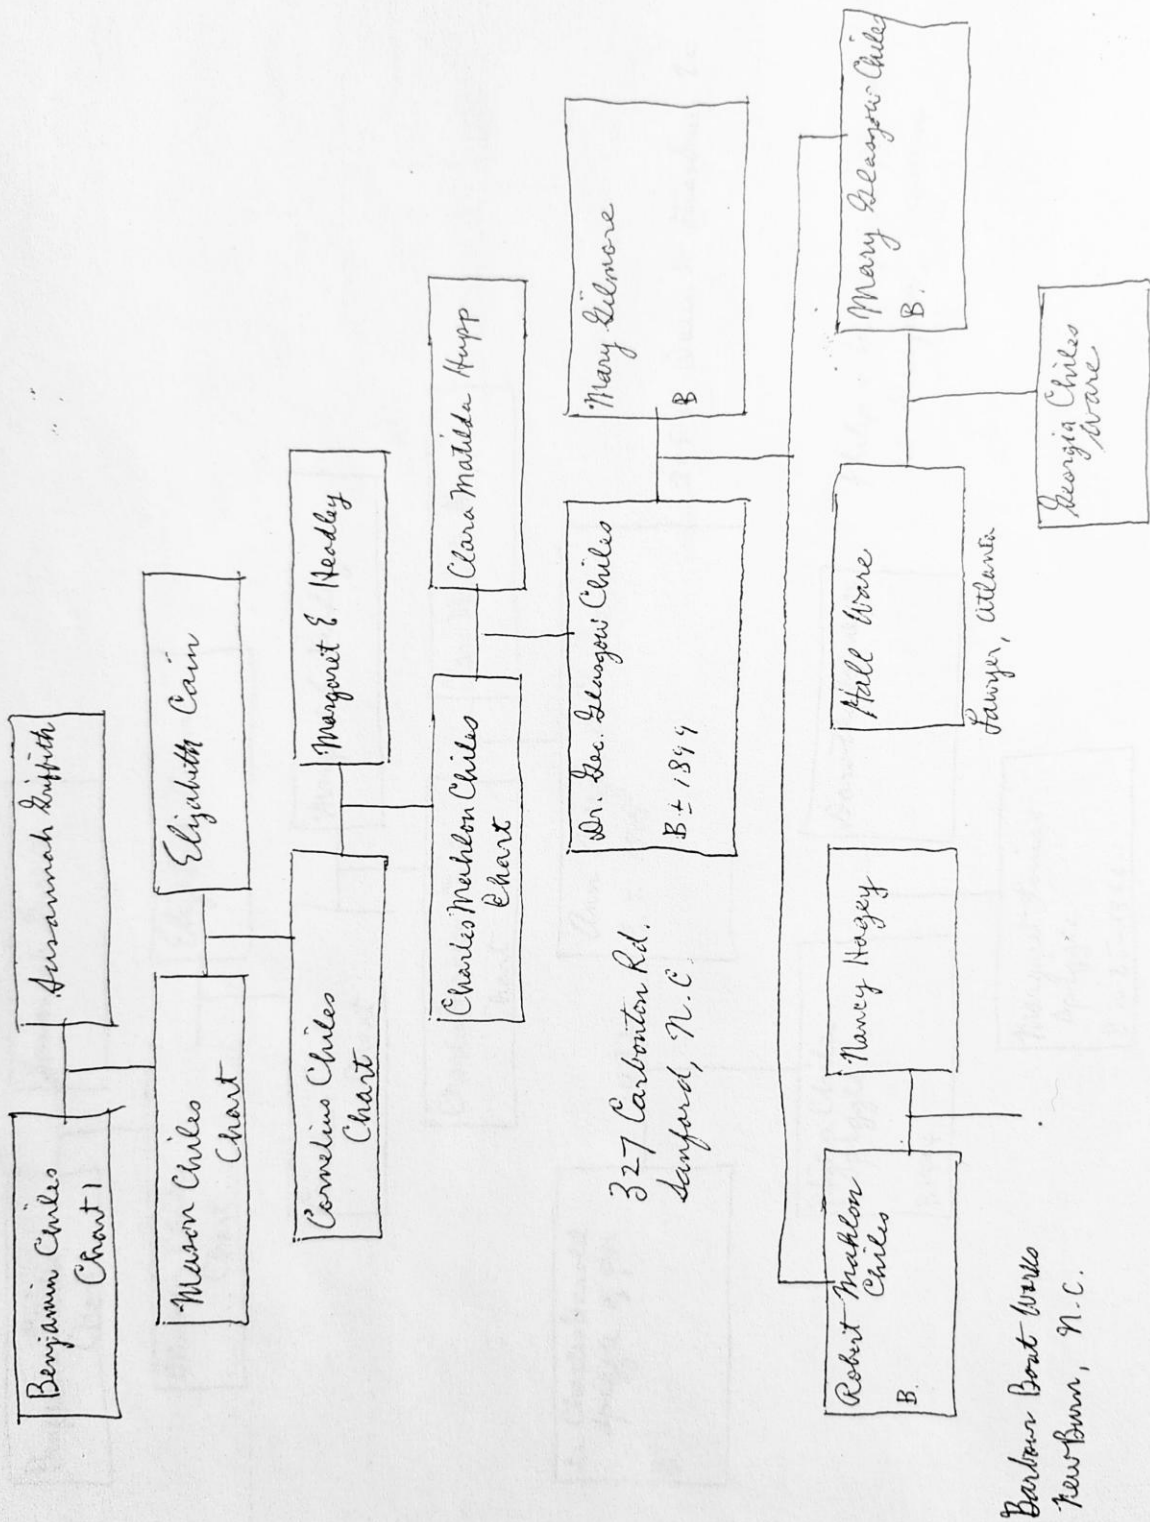 Benjamin Chiles
Chart 1
Susannah Griffith
Mason Chiles
Chart
Elizabeth Cain
Cornelius Chiles
Chart
Margaret E. Headley
Charles Mahlon Chiles
Chart
Clara Matilda Hupp
Dr. Geo. Glasgow Chiles
B ± 1899
Mary Gilmore
B
327 Carbonton Rd.
Sanford, N.C.
Robert Mahlon
Chiles
B.
Nancy Hagey
Hall Ware
Lawyer, Atlanta
Mary Glasgow Chiles
B.
Georgia Chiles
Ware
Barbour Boat Works
New Burn, N.C.